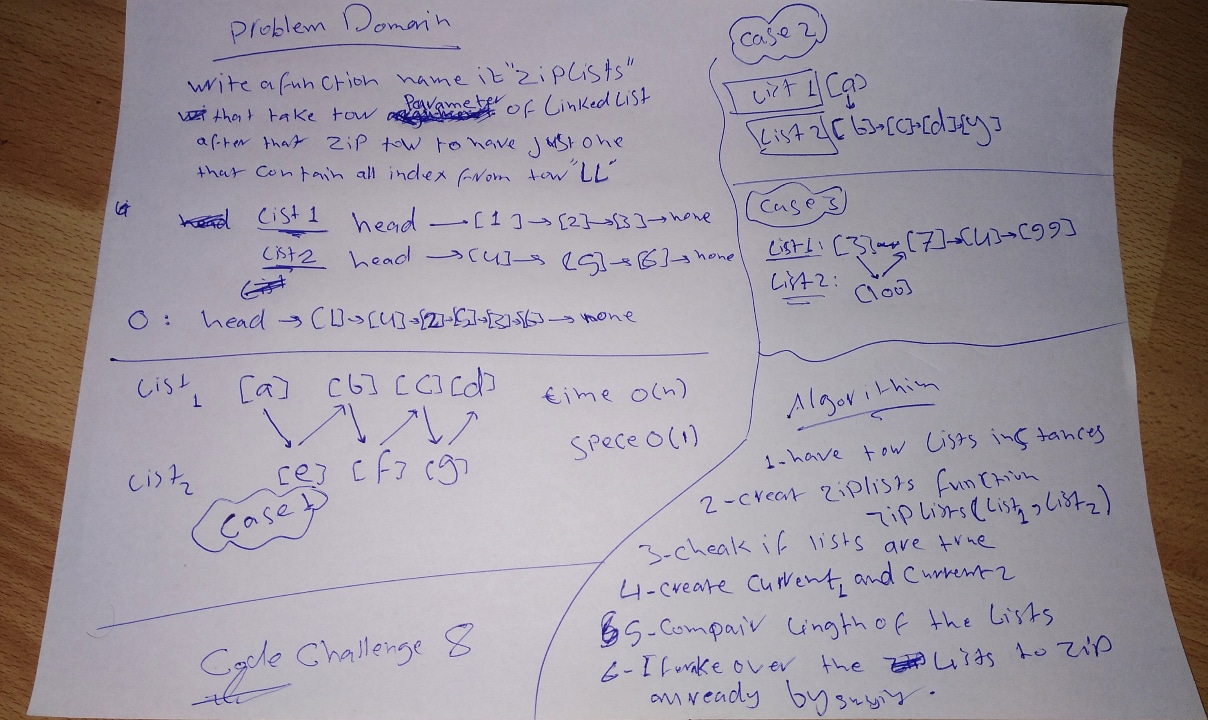 Problem Domain
write a function name it "ZipLists"
that take tow Parameter of Linked List
after that zip tow to have just one
that contain all index from tow "LL"
List 1 head → [1] → [2] → [3] → none
List 2 head → [4] → [5] → [6] → none
O: head → [1] → [4] → [2] → [5] → [3] → [6] → none
List 1 [a] [b] [c] [d]
time O(n)
spece O(1)
List 2 [e] [f] [g]
Case 1
Code Challenge 8
Case 2
List 1 [a]
List 2 [b] → [c] → [d] → [y]
Case 3
List 1: [3] → [7] → [4] → [99]
List 2: [100]
Algorithim
1-have tow Lists instances
2-creat ziplists function
zipLists(List1, List2)
3-cheak if lists are true
4-create current1 and current2
5-Compair lingth of the Lists
6- over the Lists to zip
by